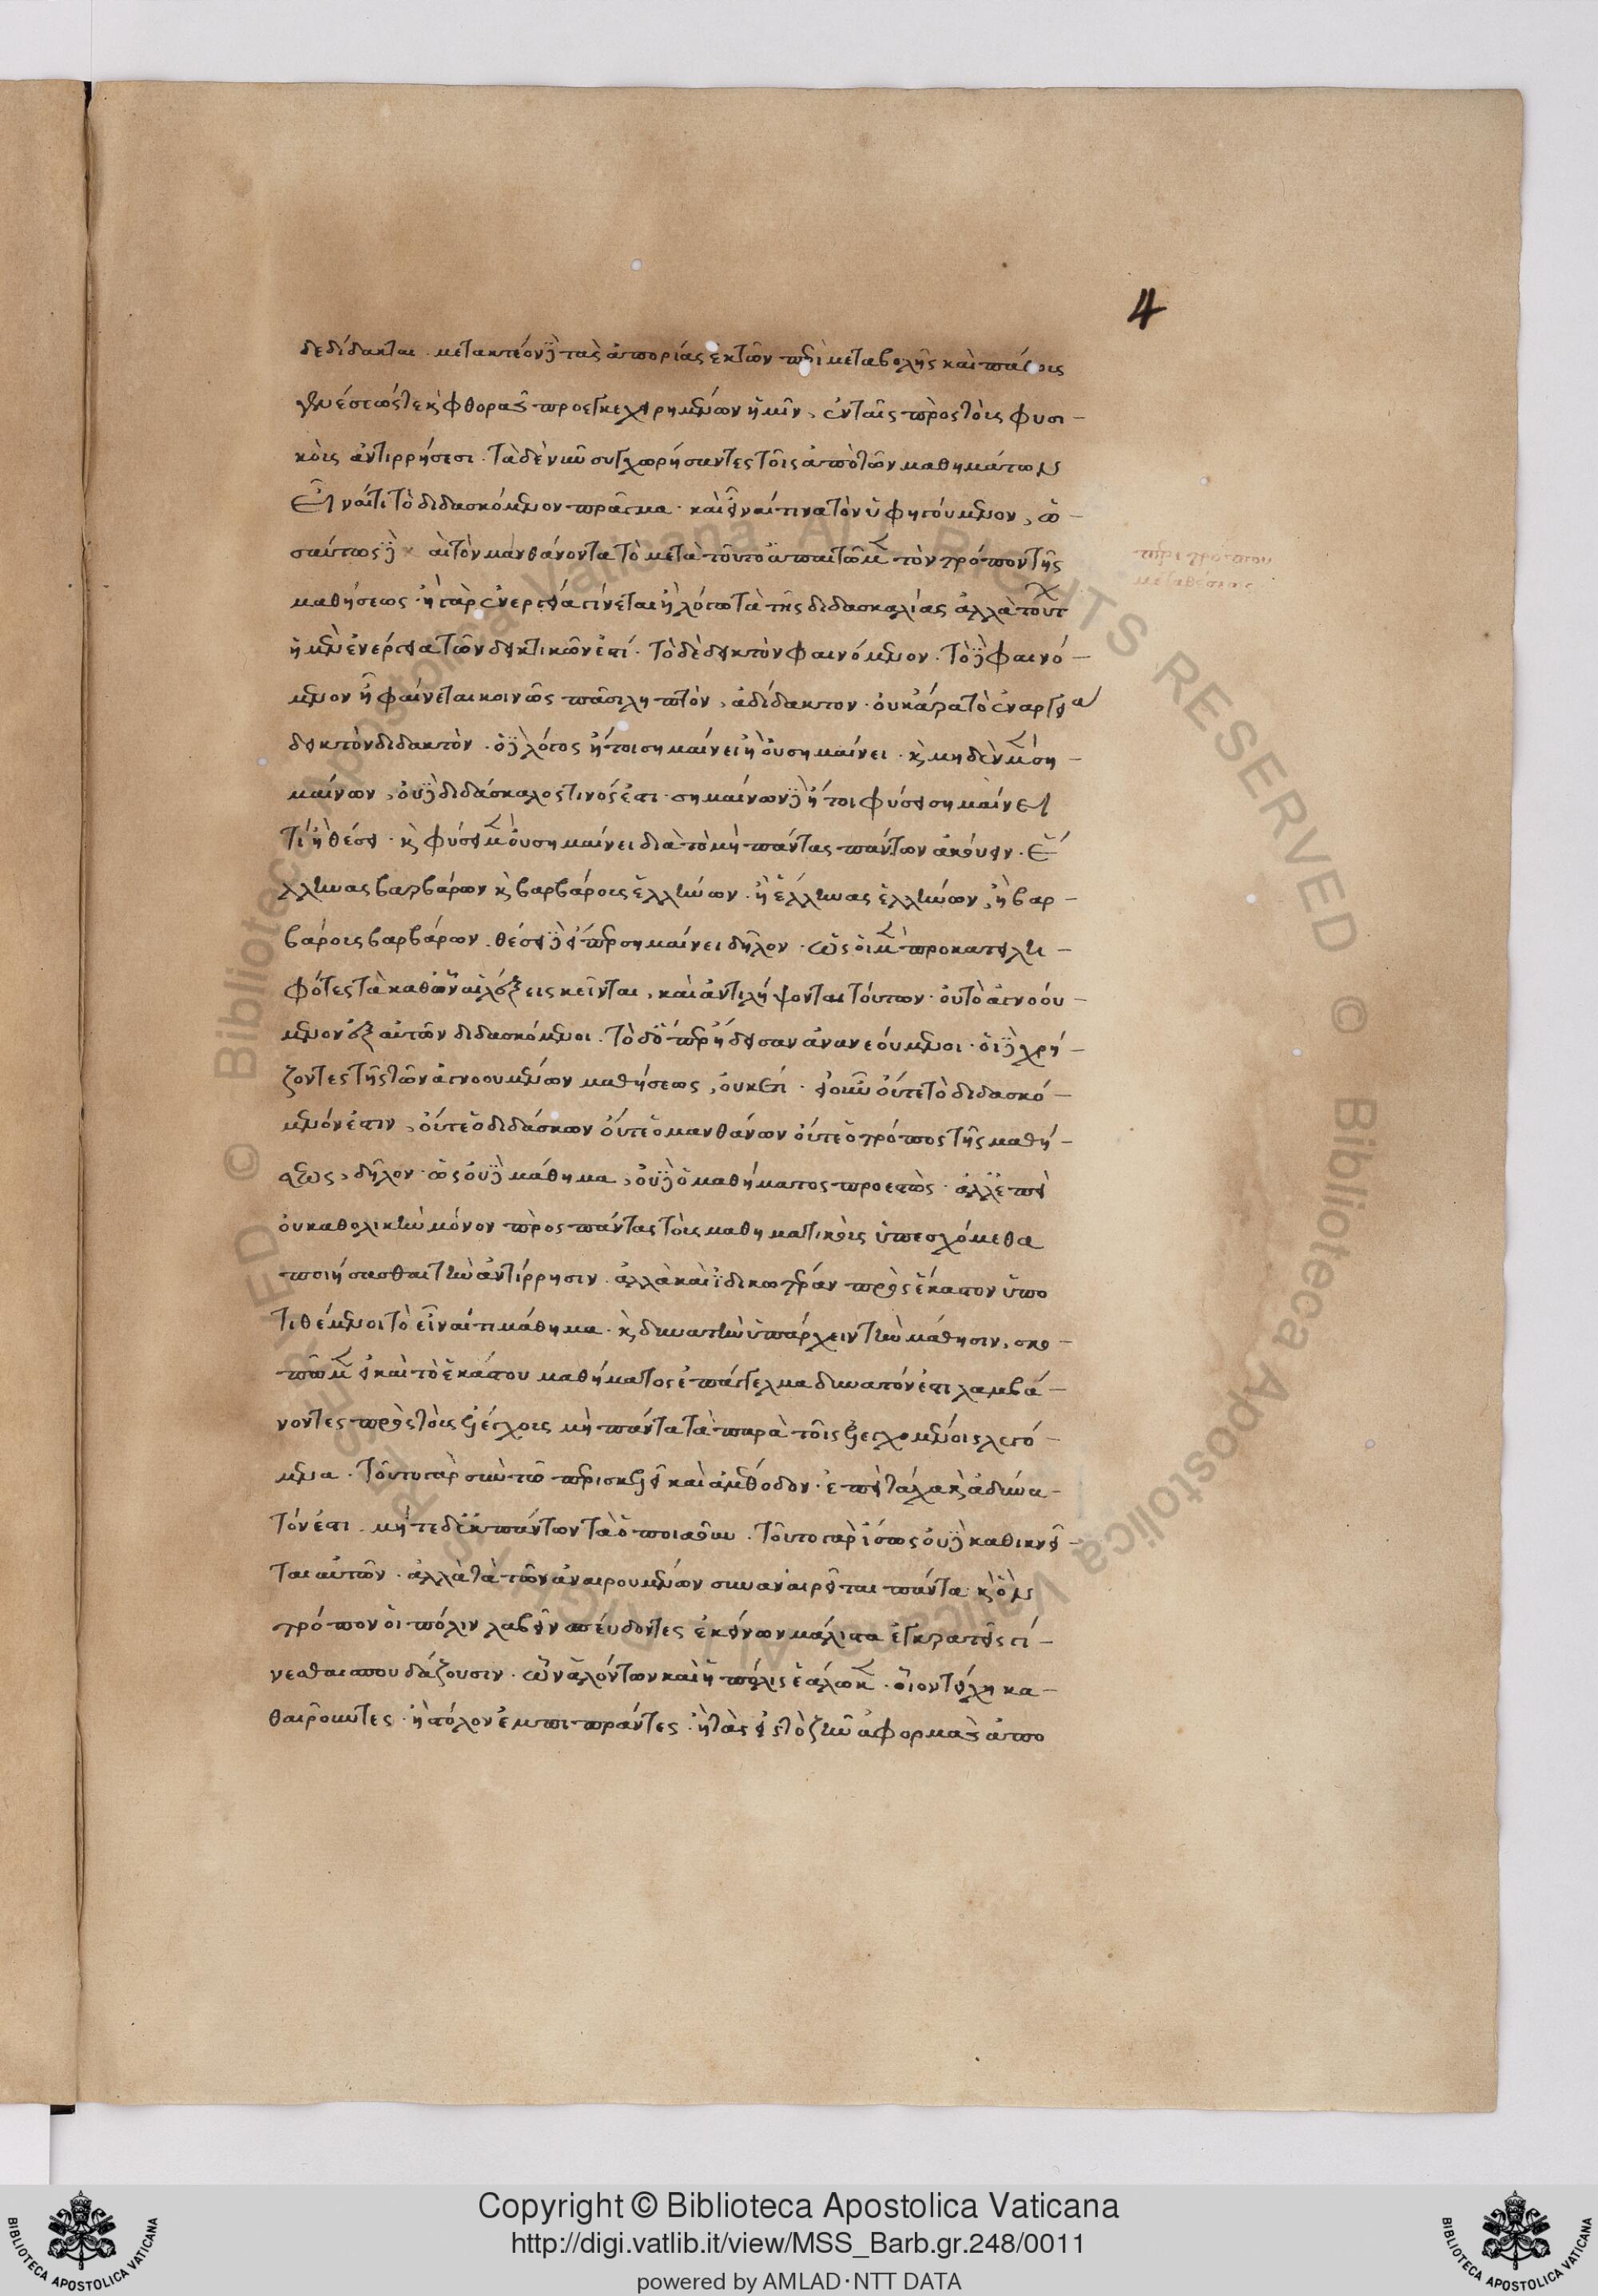 4
δεδίδακται. μετακτέον δὲ τὰς ἀπορίας ἐκ τῶν περὶ μεταβολῆς καὶ πά
γενέσεώς τε καὶ φθορᾶς προεγκεχειρημένων ἡμῖν, ἐν ταῖς πρὸς τοὺς φυσι-
κοὺς ἀντιρρήσεσι. τὰ δὲ νῦν συγχωρήσαντες τοῖς ἀπὸ τῶν μαθημάτων
εἶναί τι τὸ διδασκόμενον πρᾶγμα. καὶ εἶναί τινα τὸν ὑφηγούμενον, ὡ-
σαύτως δὲ τὸν μανθάνοντα τὸ μετὰ τοῦτο ἀπαιτῶμεν τὸν τρόπον τῆς
μαθήσεως ἢ γὰρ ἐνεργείᾳ γίνεται ἢ λόγῳ τὰ τῆς διδασκαλίας ἀλλὰ τούτων
ἡ μὲν ἐνέργεια τῶν δεικτικῶν ἐστί. τὸ δὲ δεικτὸν φαινόμενον. τὸ δὲ φαινό-
μενον ᾗ φαίνεται κοινῶς πᾶσι ληπτὸν, ἀδίδακτον. οὐκ ἄρα τὸ ἐναργείᾳ
δεικτὸν διδακτὸν. ὁ δὲ λόγος ἤτοι σημαίνει ἢ οὐ σημαίνει. καὶ μηδὲν μὲν ση-
μαίνων, οὐδὲ διδάσκαλος τινός ἐστι. σημαίνων δὲ ἤτοι φύσει σημαίνει
τί ἢ θέσει. καὶ φύσει μὲν οὐ σημαίνει διὰ τὸ μὴ πάντας πάντων ἀκούειν. ἕλ
λληνας βαρβάρων καὶ βαρβάροις ἑλλήνων. ἢ ἕλληνας ἑλλήνων, ἢ βαρ-
βάροις βαρβάρων. θέσει δὲ εἴπερ σημαίνει δῆλον. ὡς οἱ μὲν προκατειλη-
φότες τὰ καθ' ὧν αἱ λέξεις κεῖνται, καὶ ἀντιλήψονται τούτων. οὐ τὸ ἀγνοού-
μενον ἐξ αὐτῶν διδασκόμενοι. τὸ δ' ὅπερ ᾔδεισαν ἀνανεούμενοι. οἱ δὲ χρῄ-
ζοντες τῆς τῶν ἀγνοουμένων μαθήσεως, οὐκέτι. εἰ οὖν οὔτε τὸ διδασκό-
μενόν ἐστιν, οὔτε ὁ διδάσκων οὔτε ὁ μανθάνων οὔτε ὁ τρόπος τῆς μαθή-
σεως, δῆλον. ὡς οὐδὲ μάθημα, οὐδὲ ὁ μαθήματος προεστὼς. ἀλλ' ἐπεὶ
οὐ καθολικὴν μόνον πρὸς πάντας τοὺς μαθηματικοὺς ὑπεσχόμεθα
ποιήσασθαι τὴν ἀντίρρησιν. ἀλλὰ καὶ ἰδικωτέραν πρὸς ἕκαστον ὑπο
τιθέμενοι τὸ εἶναί τι μάθημα. καὶ δυνατὴν ὑπάρχειν τὴν μάθησιν, σκο-
πῶμεν εἰ καὶ τὸ ἑκάστου μαθήματος ἐπάγγελμα δυνατόν ἐστι λαμβά-
νοντες πρὸς τοὺς ἐλέγχοις μὴ πάντα τὰ παρὰ τοῖς ἐλεγχομένοις λεγό-
μενα. τοῦτο γὰρ σὺν τῷ περισκελεῖ καὶ ἀμέθοδον. ἐπεὶ τάχα καὶ ἀδύνα-
τόν ἐστι. μήτε δ' ἐκ πάντων τὰ ὁποιαοῦν. τοῦτο γὰρ ἴσως οὐδὲ καθικνεῖ-
ται αὐτῶν. ἀλλὰ τὰ τῶν ἀναιρουμένων συναναιρεῖται πάντα. καὶ ὃν
τρόπον οἱ πόλιν λαβεῖν σπεύδοντες ἐκείνων μάλιστα ἐγκρατεῖς γί-
νεσθαι σπουδάζουσιν. ὧν ἁλόντων καὶ ἡ πόλις ἑάλωκεν. οἷον τείχη κα-
θαιροῦντες. ἢ στόλον ἐμπιπράντες. ἢ τὰς εἰς τὸ ζῆν ἀφορμὰς ἀπο
Copyright © Biblioteca Apostolica Vaticana
http://digi.vatlib.it/view/MSS_Barb.gr.248/0011
powered by AMLAD·NTT DATA